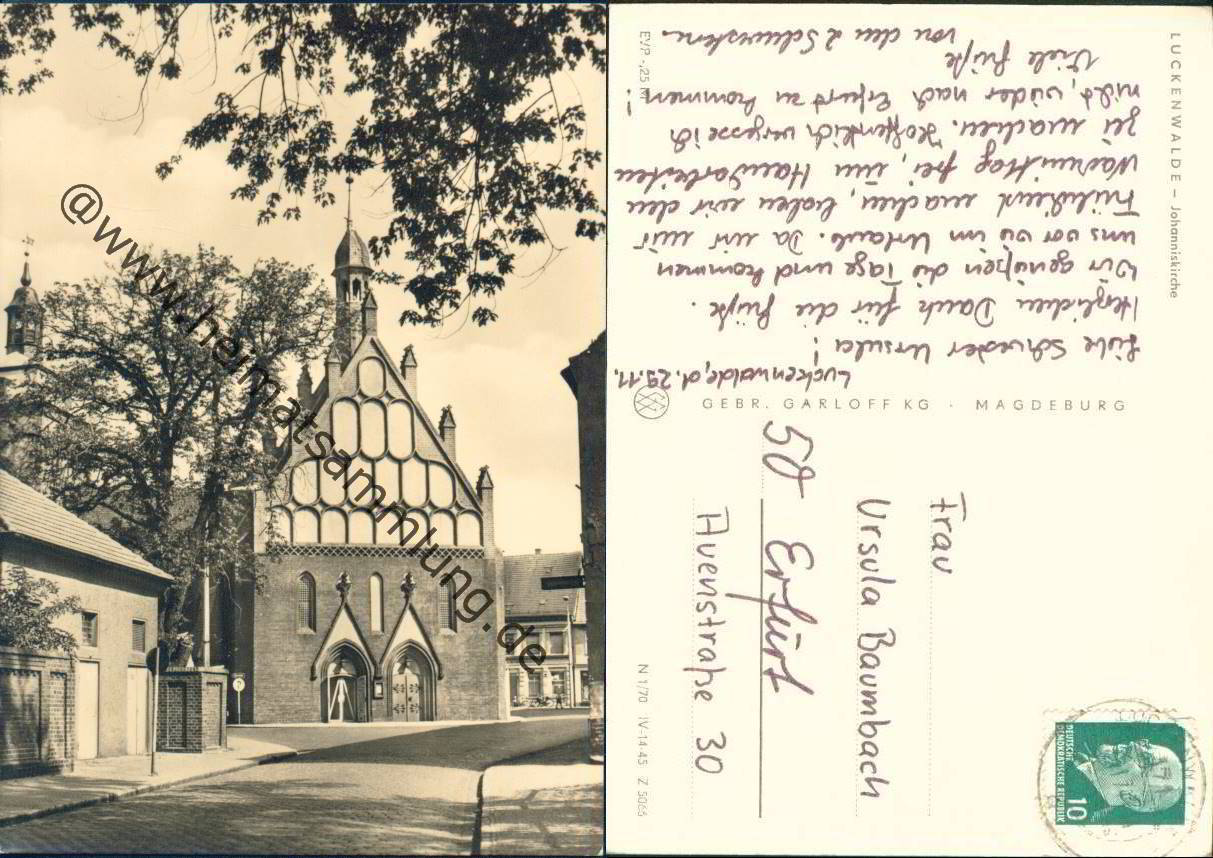 @www.heimatsammlung.de
LUCKENWALDE – Johanniskirche
EVP -,25 M
Luckenwalde, d. 29.11.
Liebe Schwester Ursula!
Herzlichen Dank für die Grüße.
Wir genießen die Tage und kommen
uns vor wie im Urlaub. Da wir nur
Frühdienst machen, haben wir den
Nachmittag frei, um Handarbeiten
zu machen. Hoffentlich vergesse ich
nicht, wieder nach Erfurt zu kommen!
Viele Grüße
von den 2 Schwestern.
GEBR. GARLOFF KG · MAGDEBURG
Frau
Ursula Baumbach
50 Erfurt
Auenstraße 30
N 1/70 IV-14-45 Z 5065
DEUTSCHE
DEMOKRATISCHE REPUBLIK
10